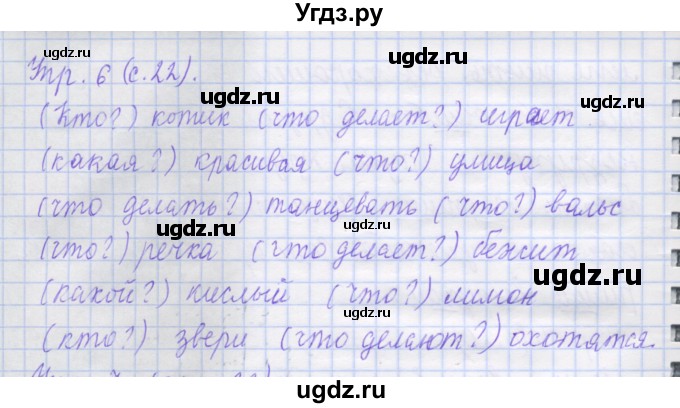 Угдз.ру
ugdz.ru ugdz.ru ugdz.ru
Упр. 6 (с.22).
ugdz.ru
(Кто?) котик (что делает?) играет
ugdz.ru
(какая?) красивая (что?) улица
(что делать?) танцевать (что?) вальс
ugdz.ru ugdz.ru
(что?) речка (что делает?) бежит
ugdz.ru
(какой?) кислый (что?) лимон
(кто?) звери (что делают?) охотятся.
ugdz.ru
ugdz.ru